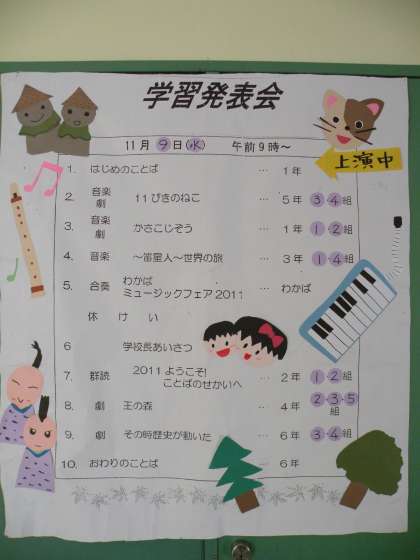 学習発表会
11月9日(水) 午前9時～
上演中
1. はじめのことば … 1年
2. 音楽劇 11ぴきのねこ … 5年 3・4組
3. 音楽劇 かさこじぞう … 1年 1・2組
4. 音楽 ～笛星人～世界の旅 … 3年 1・4組
5. 合奏 わかば
ミュージックフェア2011 … わかば
休けい
6 学校長あいさつ
7. 群読 2011ようこそ!
ことばのせかいへ … 2年 1・2組
8. 劇 王の森 … 4年 2・3・5組
9. 劇 その時歴史が動いた … 6年 3・4組
10. おわりのことば … 6年